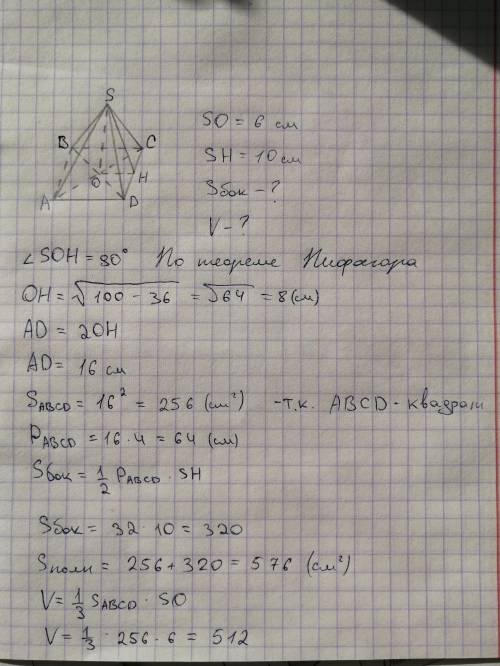 S
B
C
O
H
A
D
SO = 6 см
SH = 10 см
Sбок - ?
V - ?
∠SOH = 90° По теореме Пифагора
OH = √100 - 36 = √64 = 8 (см)
AD = 2OH
AD = 16 см
SABCD = 16² = 256 (см²) - т.к. ABCD - квадрат
PABCD = 16 · 4 = 64 (см)
Sбок = 1/2 PABCD · SH
Sбок = 32 · 10 = 320
Sполн = 256 + 320 = 576 (см²)
V = 1/3 SABCD · SO
V = 1/3 · 256 · 6 = 512